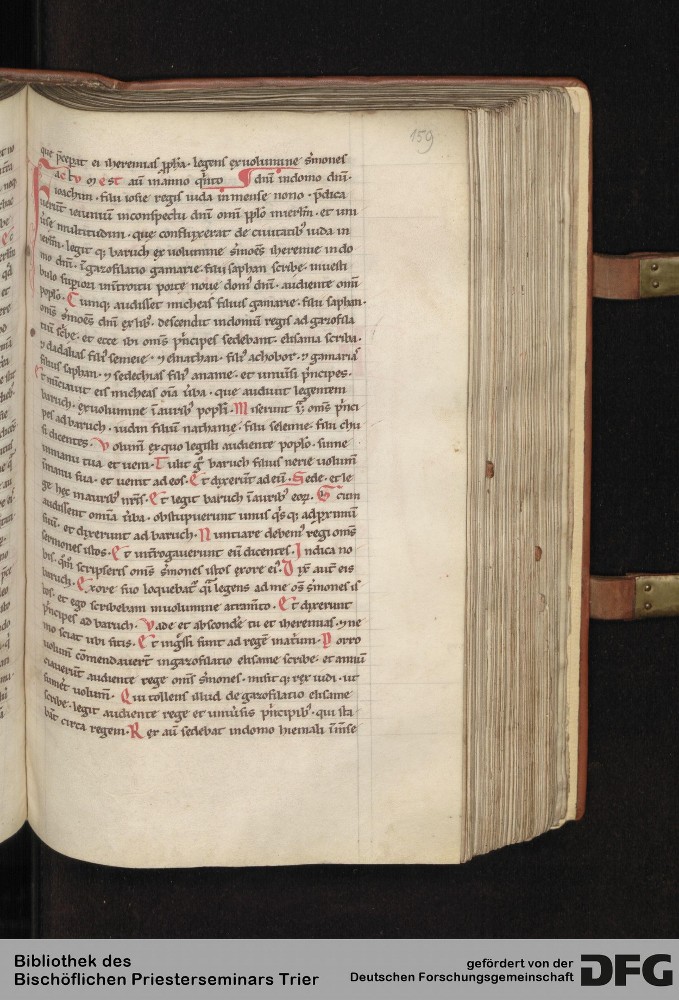 159
que p̄ceperat ei iheremias ꝓph̄a · legens ex uolumine s̄mones
Factum est aū in anno q̇nto dn̄i in domo dn̄i ·
ioachim · filii iosie regis iuda in mense nono · p̄dica
uerūt ieiunium in conspectu dn̄i om̄i pp̄lo in ierl̄m · et uni
uerse multitudini · que confluxerat de ciuitatib; iuda in
ierl̄m · legit q; baruch ex uolumine s̄moēs iheremie in do
mo dn̄i · ī gazofilatio gamarie · filii saphan scribe · in uesti
bulo supiori in introitu porte noue dom; dn̄i · audiente om̄i
poplo · Cumq; audisset micheas filius gamarie · filii saphan ·
om̄s s̄moēs dn̄i ex lib̄ · descendit in domū regis ad gazofila
tiū sc̄be · et ecce ibi om̄s p̄ncipes sedebant · elisama scriba ·
⁊ dalaias fili; semeie · ⁊ elnathan · fili; achobor · ⁊ gamaria
filius saphan · ⁊ sedechias fili; ananie · et uniu̇si p̄ncipes ·
Et nūciauit eis micheas oīa ūba · que audiuit legentem
baruch · ex uolumine ī aurib; popl̄i · Miserunt om̄s p̄nci
pes ad baruch · iudin filiū nathanie · filii selemie · filii chu
si dicentes · Volum̄ ex quo legisti audiente poplo · sume
in manu tua et ueni · Tulit g̊ baruch filius nerie uolum̄
in manu sua · et uenit ad eos · Et dixerūt ad eū · Sede · et le
ge hec in aurib; nr̄is · Et legit baruch ī aurib; eoꝝ · cum
audissent omīa ūba · obstupuerunt unus q̇sq; ad ꝓximū
suū · et dixerunt ad baruch · Nuntiare debem; regi om̄s
sermones istos · Et int̄rogauerunt eū dicentes · Indica no
bis · qm̄ scripseris om̄s s̄mones istos ex ore ei; · Dix̄ aut̄ eis
baruch · Ex ore suo loquebat̄ qͣ legens ad me om̄s s̄mones is
tos · et ego scribebam in uolumine atram̄to · Et dixerunt
p̄ncipes ad baruch · Vade et abscondē tu et iheremias · ⁊ ne
mo sciat ubi sitis · Et ingr̄ssi sunt ad regē in atrium · Porro
uolum̄ com̄endauerūt in gazofilatio elisame scribe · et annū
ciauerūt audiente rege om̄s s̄mones · misit q; rex iudi · ut
sumet̄ uolum̄ · Qui tollens illud de gazofilatio elisame
scribe · legit audiente rege et uniu̇sis p̄ncipib; · qui sta
bāt circa regem · Rex aū sedebat in domo hiemali ī m̄se
Bibliothek des
Bischöflichen Priesterseminars Trier
gefördert von der
Deutschen Forschungsgemeinschaft
DFG